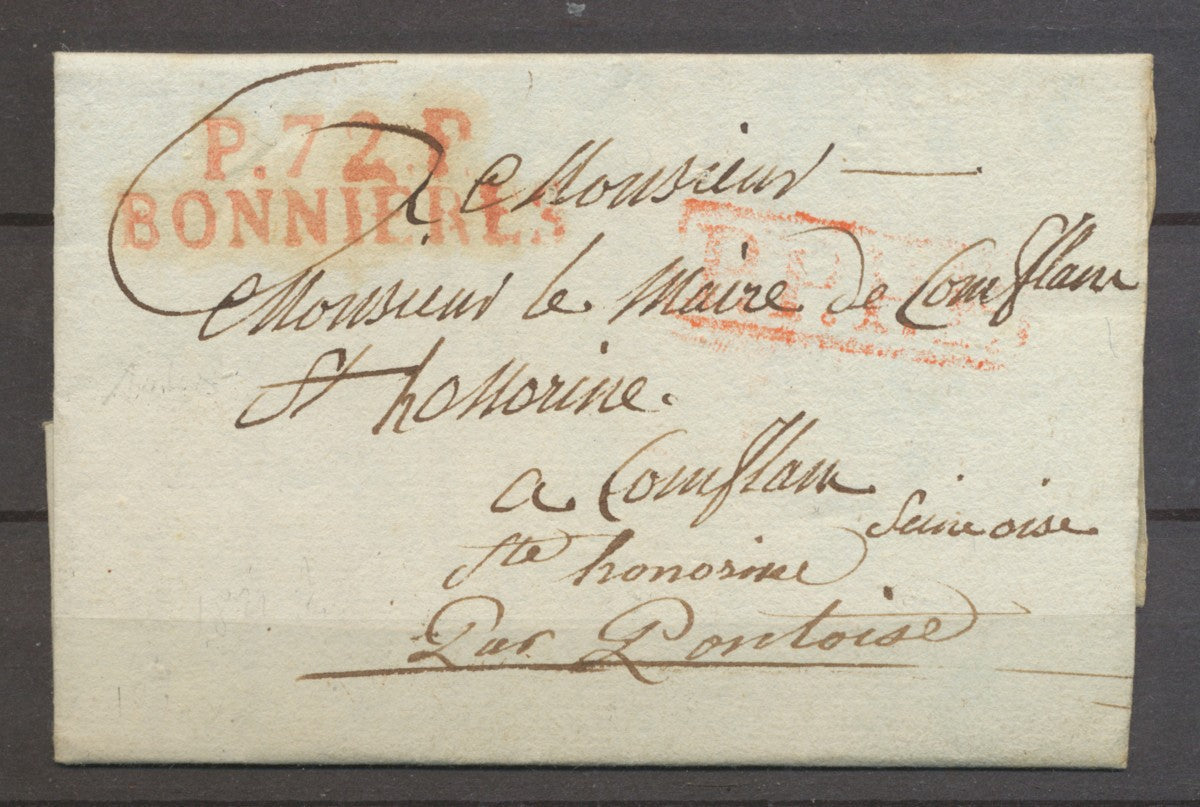 P.72.P.
BONNIERES
A Monsieur
P.P.P.P.
Monsieur le Maire de Comflam
St honorine.
a Comflam
Seine oise
Ste honorine
Par Pontoise